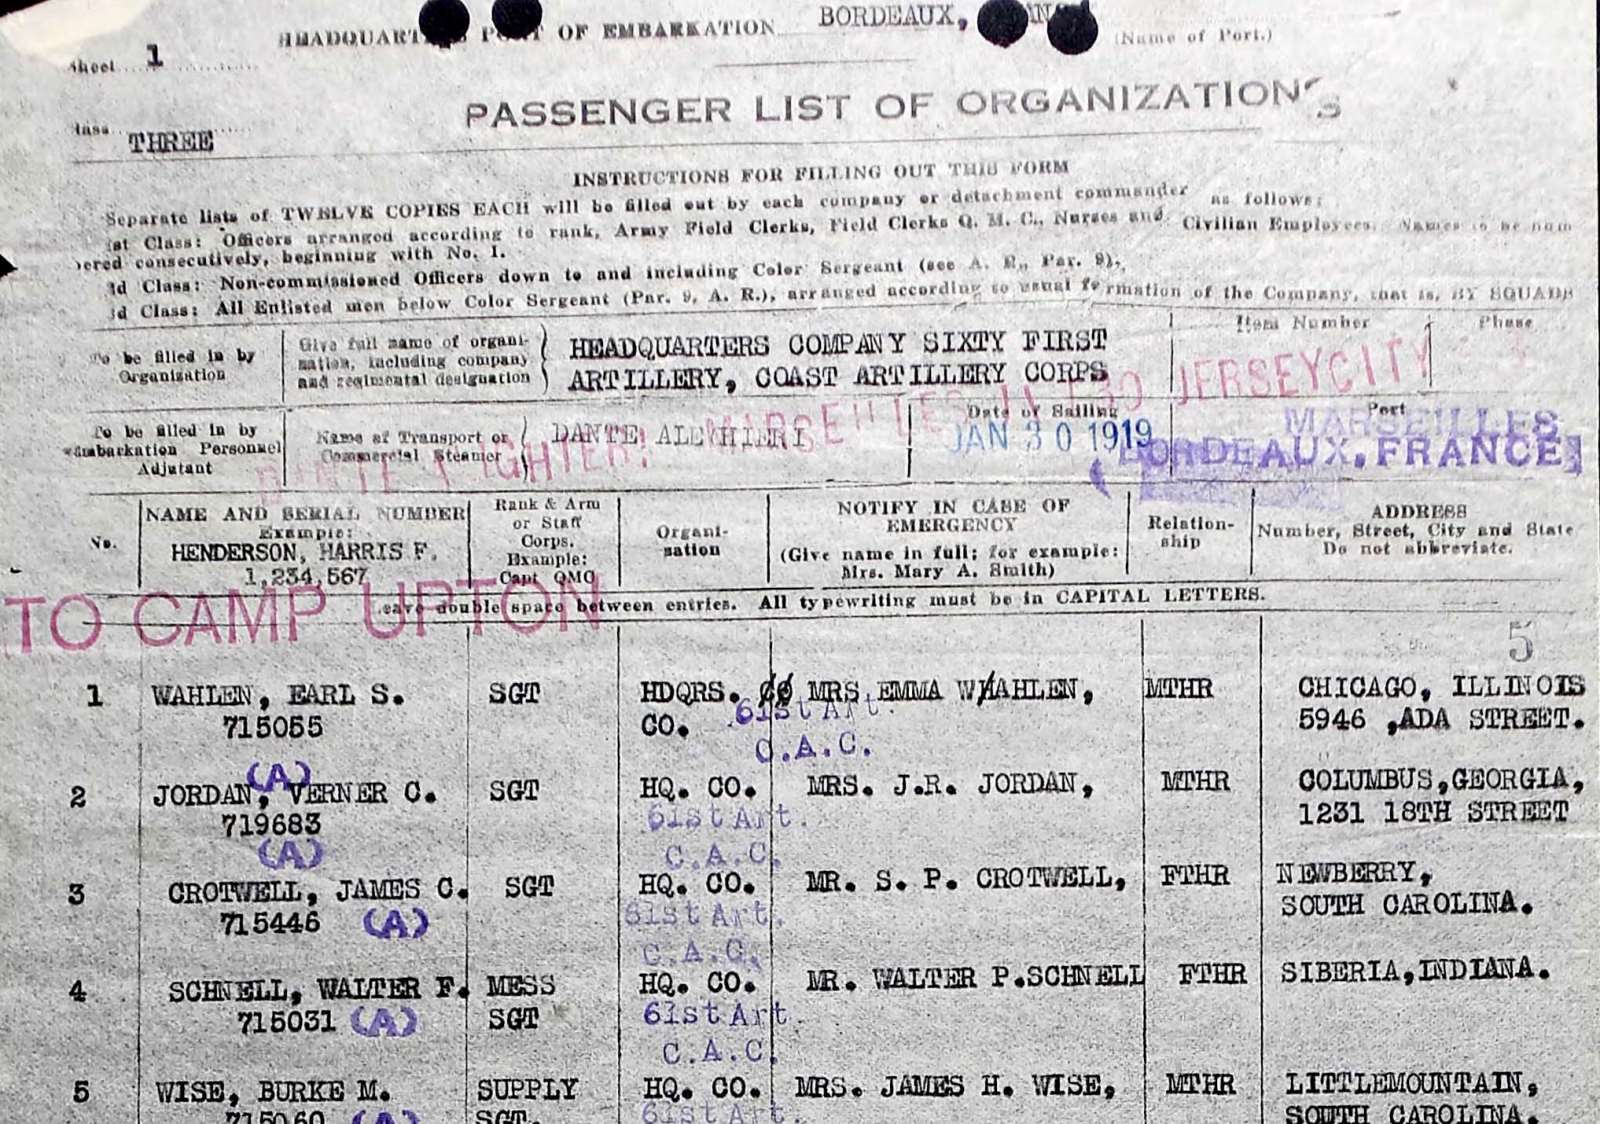 Sheet 1
HEADQUARTERS PORT OF EMBARKATION BORDEAUX,
(Name of Port.)
PASSENGER LIST OF ORGANIZATIONS
THREE
INSTRUCTIONS FOR FILLING OUT THIS FORM
Separate lists of TWELVE COPIES EACH will be filled out by each company or detachment commander as follows:
st Class: Officers arranged according to rank, Army Field Clerks, Field Clerks Q. M. C., Nurses and Civilian Employees. Names to be num
bered consecutively, beginning with No. 1.
d Class: Non-commissioned Officers down to and including Color Sergeant (see A. R., Par. 9).
d Class: All Enlisted men below Color Sergeant (Par. 9, A. R.), arranged according to usual formation of the Company, that is, BY SQUADS
To be filled in by
Organization
Give full name of organi-
zation, including company
and regimental designation
HEADQUARTERS COMPANY SIXTY FIRST
ARTILLERY, COAST ARTILLERY CORPS
Item Number
Phase
JERSEYCITY
To be filled in by
Embarkation Personnel
Adjutant
Name of Transport or
Commercial Steamer
DANTE ALEGHIERI
Date of Sailing
JAN 30 1919
Port
MARSEILLES
BORDEAUX, FRANCE
No.
NAME AND SERIAL NUMBER
Example:
HENDERSON, HARRIS F.
1,234,567
Rank & Arm
or Staff
Corps.
Example:
Capt QMC
Organi-
sation
NOTIFY IN CASE OF
EMERGENCY
(Give name in full; for example:
Mrs. Mary A. Smith)
Relation-
ship
ADDRESS
Number, Street, City and State
Do not abbreviate.
Leave double space between entries. All typewriting must be in CAPITAL LETTERS.
TO CAMP UPTON
5
1 WAHLEN, EARL S. SGT HDQRS. CO MRS EMMA WHAHLEN, MTHR CHICAGO, ILLINOIS
715055 CO. 61st Art. 5946 ,ADA STREET.
C.A.C.
(A)
2 JORDAN, VERNER C. SGT HQ. CO. MRS. J.R. JORDAN, MTHR COLUMBUS,GEORGIA,
719683 61st Art. 1231 18TH STREET
(A) C.A.C.
3 CROTWELL, JAMES C. SGT HQ. CO. MR. S. P. CROTWELL, FTHR NEWBERRY,
715446 (A) 61st Art. SOUTH CAROLINA.
C.A.C.
4 SCHNELL, WALTER F. MESS HQ. CO. MR. WALTER P.SCHNELL FTHR SIBERIA,INDIANA.
715031 (A) SGT 61st Art.
C.A.C.
5 WISE, BURKE M. SUPPLY HQ. CO. MRS. JAMES H. WISE, MTHR LITTLEMOUNTAIN,
715060 (A) SGT. 61st Art. SOUTH CAROLINA.